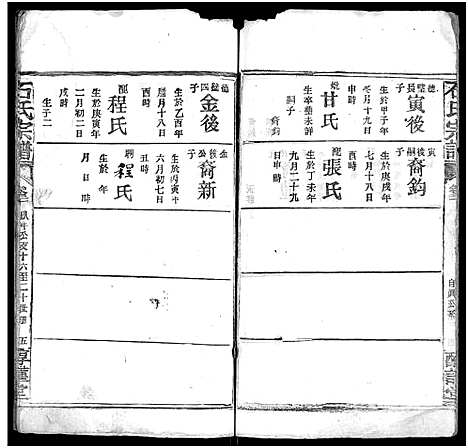 石氏宗譜
德璧長子
寅後
生於甲子年
冬月十九日
申時
妣甘氏
生卒葬未詳
嗣子
裔鈞
寅後嗣子
裔鈞
生於庚戌年
七月十八日
時
配張氏
生於丁未年
九月二十九
時
德璧四子
金後
生於乙酉年
臘月十八日
酉時
配程氏
生於庚戌年
二月初二日
戌時
生子二
金後公子
裔新
生於丙寅年
六月初七日
丑時
聘程氏
生於 年
月 日 時
石氏宗譜
卷三
十六至二十世
五
惇謹堂